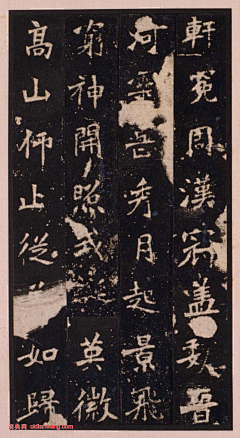 軒冕周漢冠蓋魏晉
河靈岳秀月起景飛
窮神開照式誕英徽
高山仰止從善如歸